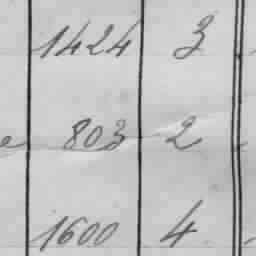 1424 3
803 2
1600 4